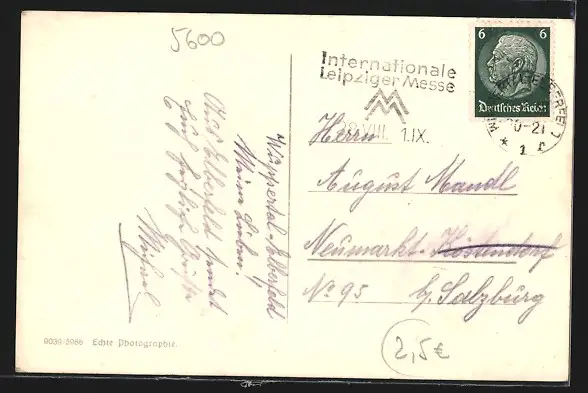 5600
Internationale
Leipziger Messe
28.VIII. 1.IX.
6 6
Deutsches Reich
Wuppertal-Elberfeld
Meine Lieben!
Aus Elberfeld sendet
Euch herzliche Grüße
Herrn
August Mandl
Neumarkt-Köstendorf
No 95 b/ Salzburg
2,5€
9039-5986 Echte Photographie.